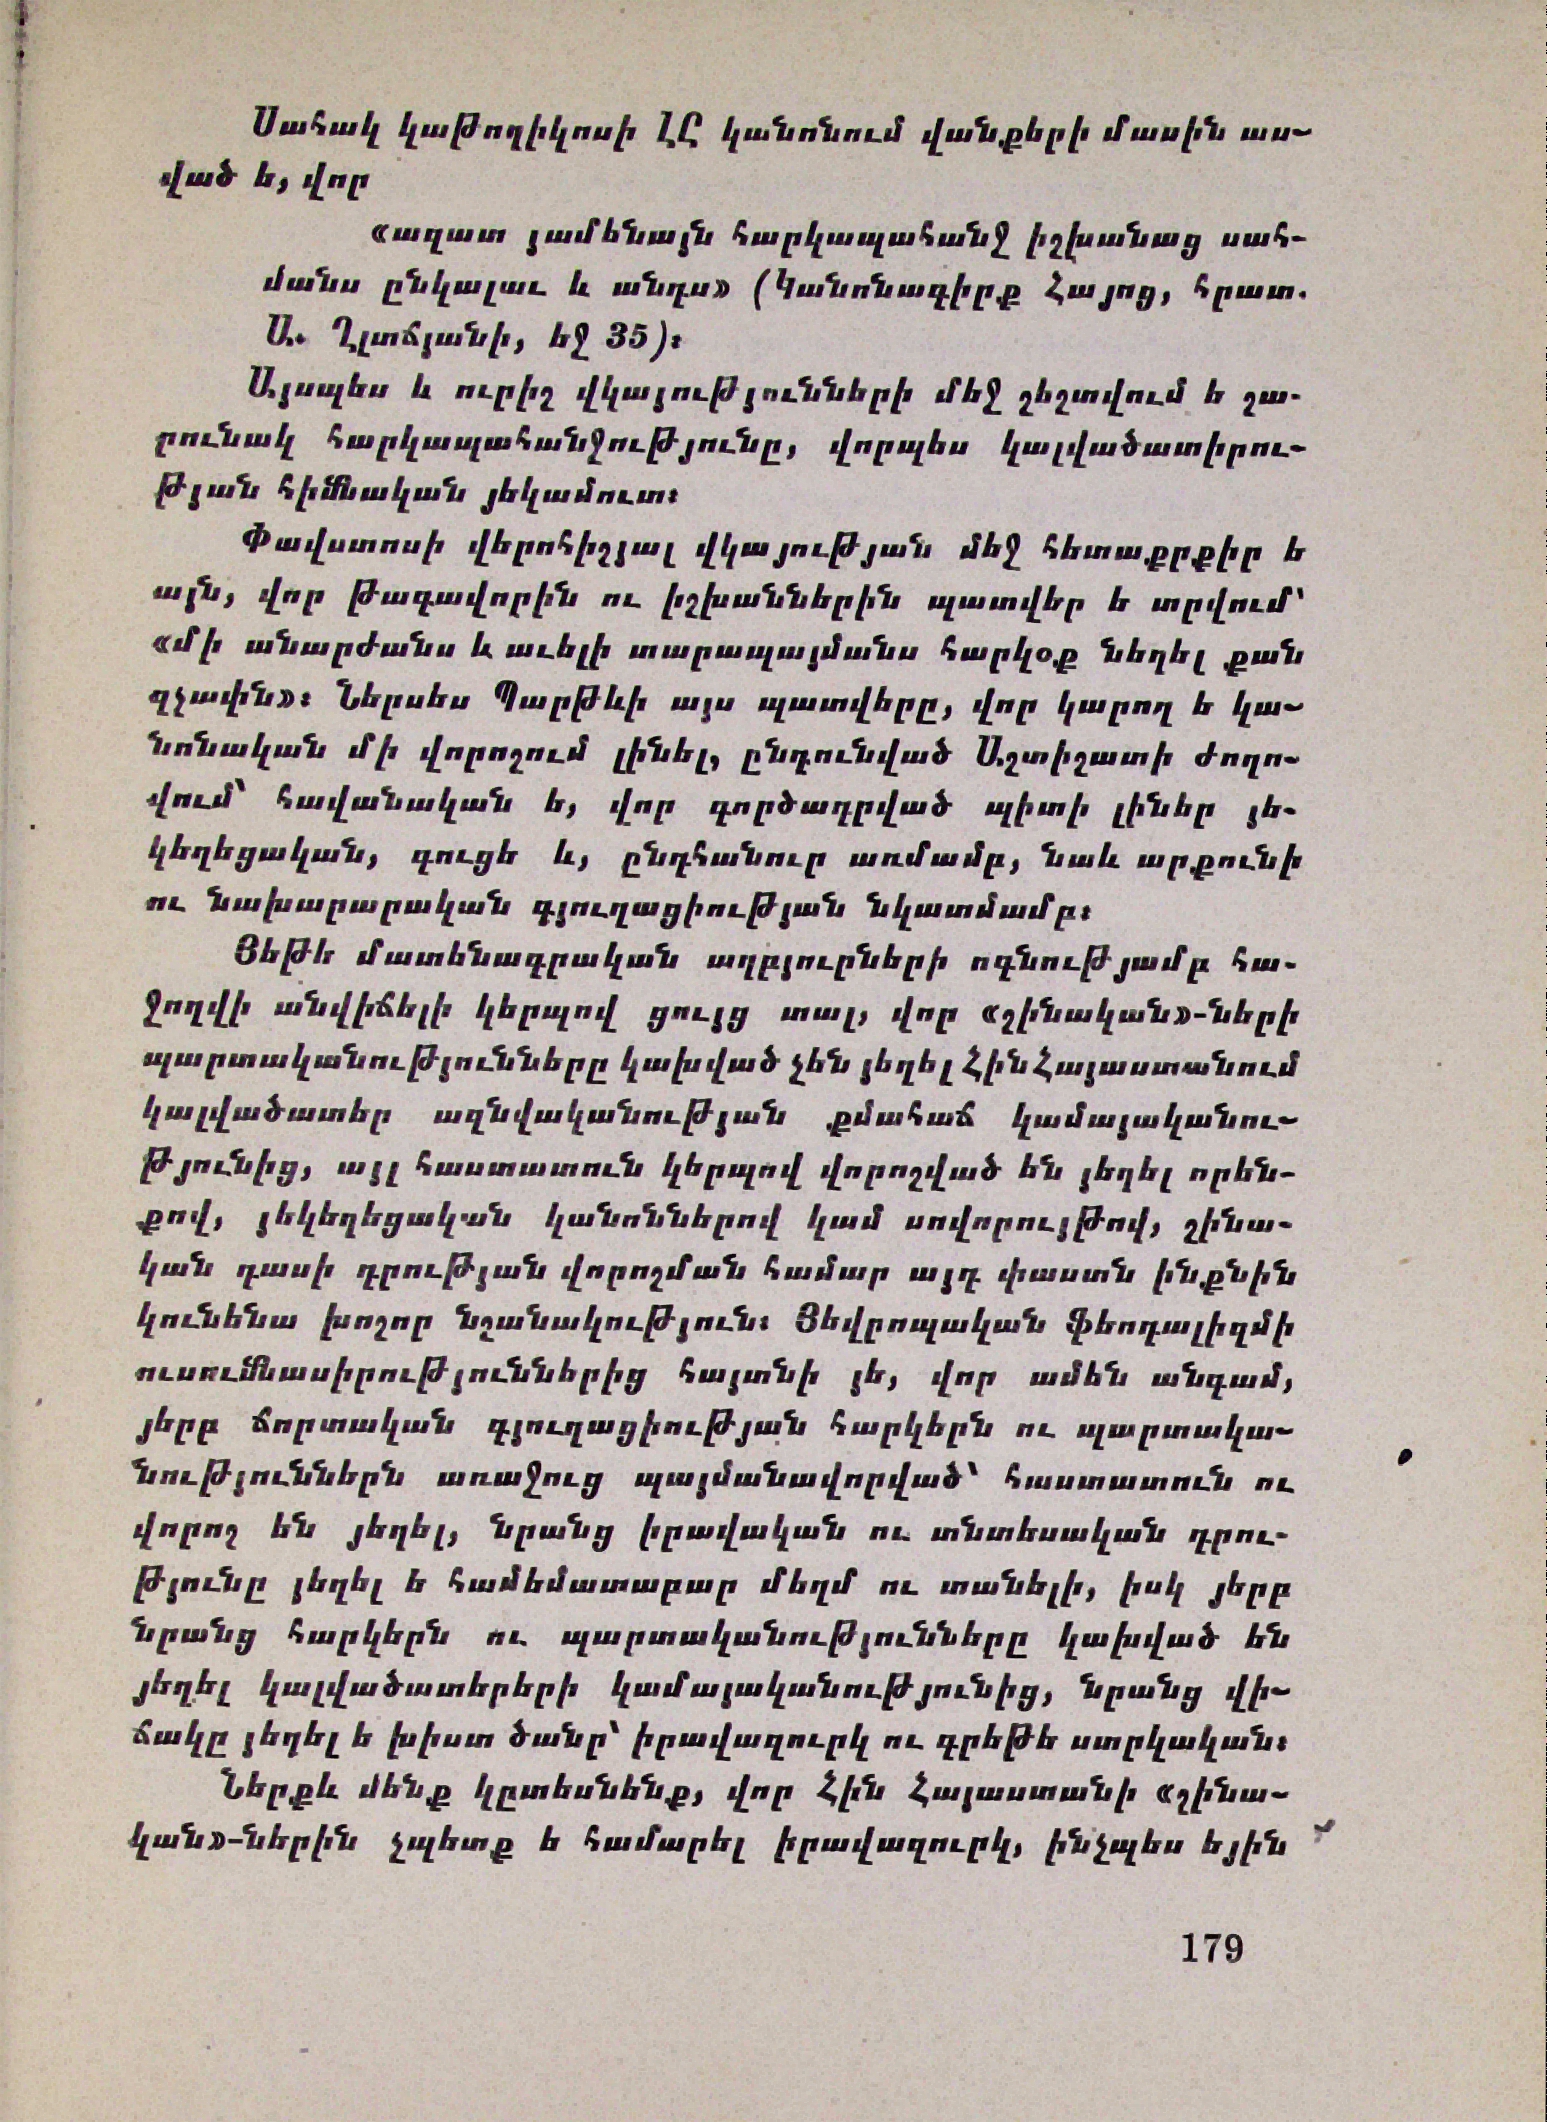 Սահակ կաթողիկոսի ԼԸ կանոնում վանքերի մասին աս-
ված ե, վոր
«ազատ յամենայն հարկապահանջ իշխանաց սահ-
մանս ընկալաւ և անդս» (Կանոնագիրք Հայոց, հրատ.
Ա. Ղլտճյանի, եջ 35)։
Այսպես և ուրիշ վկայությունների մեջ շեշտվում ե շա-
րունակ հարկապահանջությունը, վորպես կալվածատիրու-
թյան հիմնական յեկամուտ։
Փավստոսի վերոհիշյալ վկայության մեջ հետաքրքիր ե
այն, վոր թագավորին ու իշխաններին պատվեր ե տրվում՝
«մի անարժանս և աւելի տարապայմանս հարկօք նեղել քան
զչափն»։ Ներսես Պարթևի այս պատվերը, վոր կարող ե կա-
նոնական մի վորոշում լինել, ընդունված Աշտիշատի ժողո-
վում՝ հավանական ե, վոր գործադրված պիտի լիներ յե-
կեղեցական, գուցե և, ընդհանուր առմամբ, նաև արքունի
ու նախարարական գյուղացիության նկատմամբ։
Յեթե մատենագրական աղբյուրների ոգնությամբ հա-
ջողվի անվիճելի կերպով ցույց տալ, վոր «շինական»-ների
պարտականությունները կախված չեն յեղել Հին Հայաստանում
կալվածատեր ազնվականության քմահաճ կամայականու-
թյունից, այլ հաստատուն կերպով վորոշված են յեղել որեն-
քով, յեկեղեցական կանոններով կամ սովորույթով, շինա-
կան դասի դրության վորոշման համար այդ փաստն ինքնին
կունենա խոշոր նշանակություն։ Յեվրոպական ֆեոդալիզմի
ուսումնասիրություններից հայտնի յե, վոր ամեն անգամ,
յերբ ճորտական գյուղացիության հարկերն ու պարտակա-
նություններն առաջուց պայմանավորված՝ հաստատուն ու
վորոշ են յեղել, նրանց իրավական ու տնտեսական դրու-
թյունը յեղել ե համեմատաբար մեղմ ու տանելի, իսկ յերբ
նրանց հարկերն ու պարտականությունները կախված են
յեղել կալվածատերերի կամայականությունից, նրանց վի-
ճակը յեղել ե խիստ ծանր՝ իրավազուրկ ու գրեթե ստրկական։
Ներքև մենք կըտեսնենք, վոր Հին Հայաստանի «շինա-
կան»-ներին չպետք ե համարել իրավազուրկ, ինչպես եյին
179